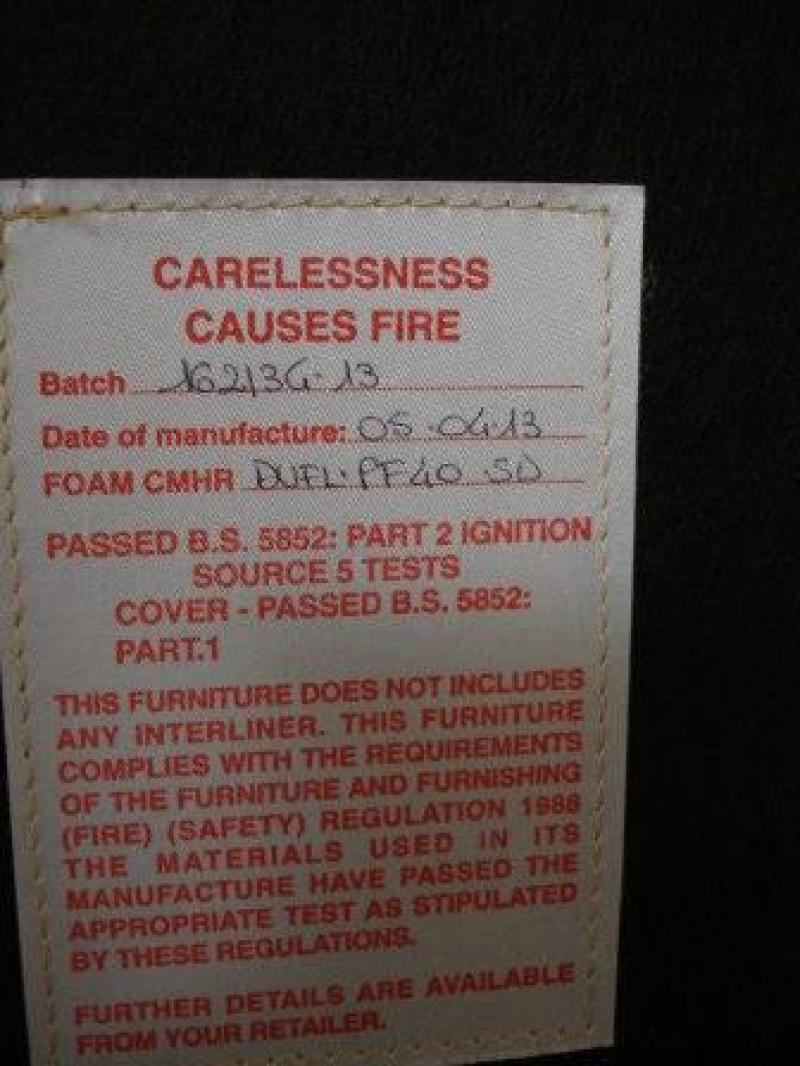 CARELESSNESS
CAUSES FIRE
Batch 16213G-13
Date of manufacture: 05.04.13
FOAM CMHR DUFL.PF40.SD
PASSED B.S. 5852: PART 2 IGNITION
SOURCE 5 TESTS
COVER - PASSED B.S. 5852:
PART.1
THIS FURNITURE DOES NOT INCLUDES
ANY INTERLINER. THIS FURNITURE
COMPLIES WITH THE REQUIREMENTS
OF THE FURNITURE AND FURNISHING
(FIRE) (SAFETY) REGULATION 1988
THE MATERIALS USED IN ITS
MANUFACTURE HAVE PASSED THE
APPROPRIATE TEST AS STIPULATED
BY THESE REGULATIONS.
FURTHER DETAILS ARE AVAILABLE
FROM YOUR RETAILER.